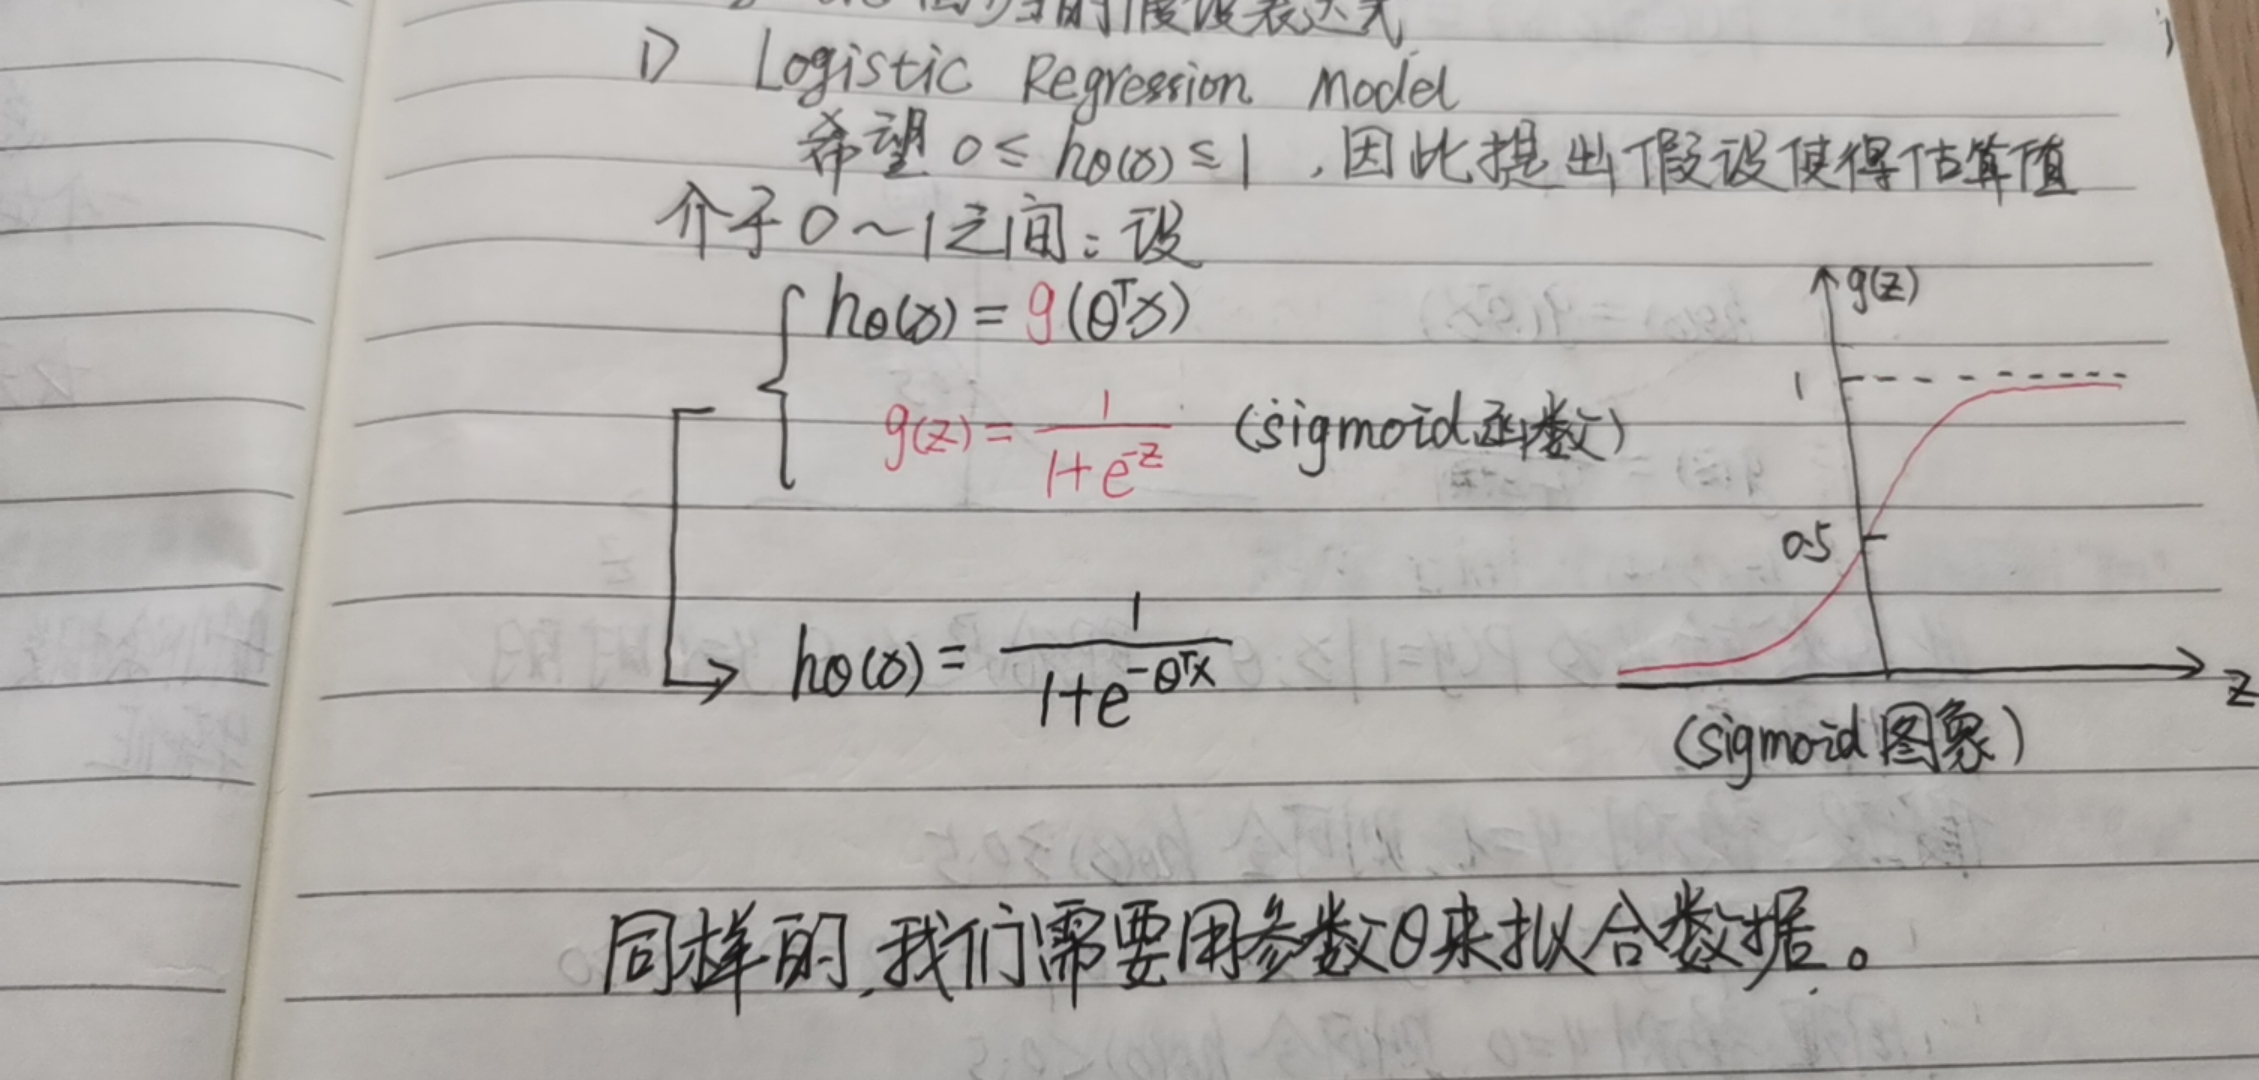 归的假设表达式
1) Logistic Regression Model
希望 0 ≤ hθ(x) ≤ 1 , 因此提出假设使得估算值
介于 0~1之间：设
hθ(x) = g(θᵀx)
g(z) = 1/(1+e^-z) (sigmoid函数)
hθ(x) = 1/(1+e^-θᵀx)
g(z)
1
0.5
z
(sigmoid 图象)
同样的,我们需要用参数θ来拟合数据。